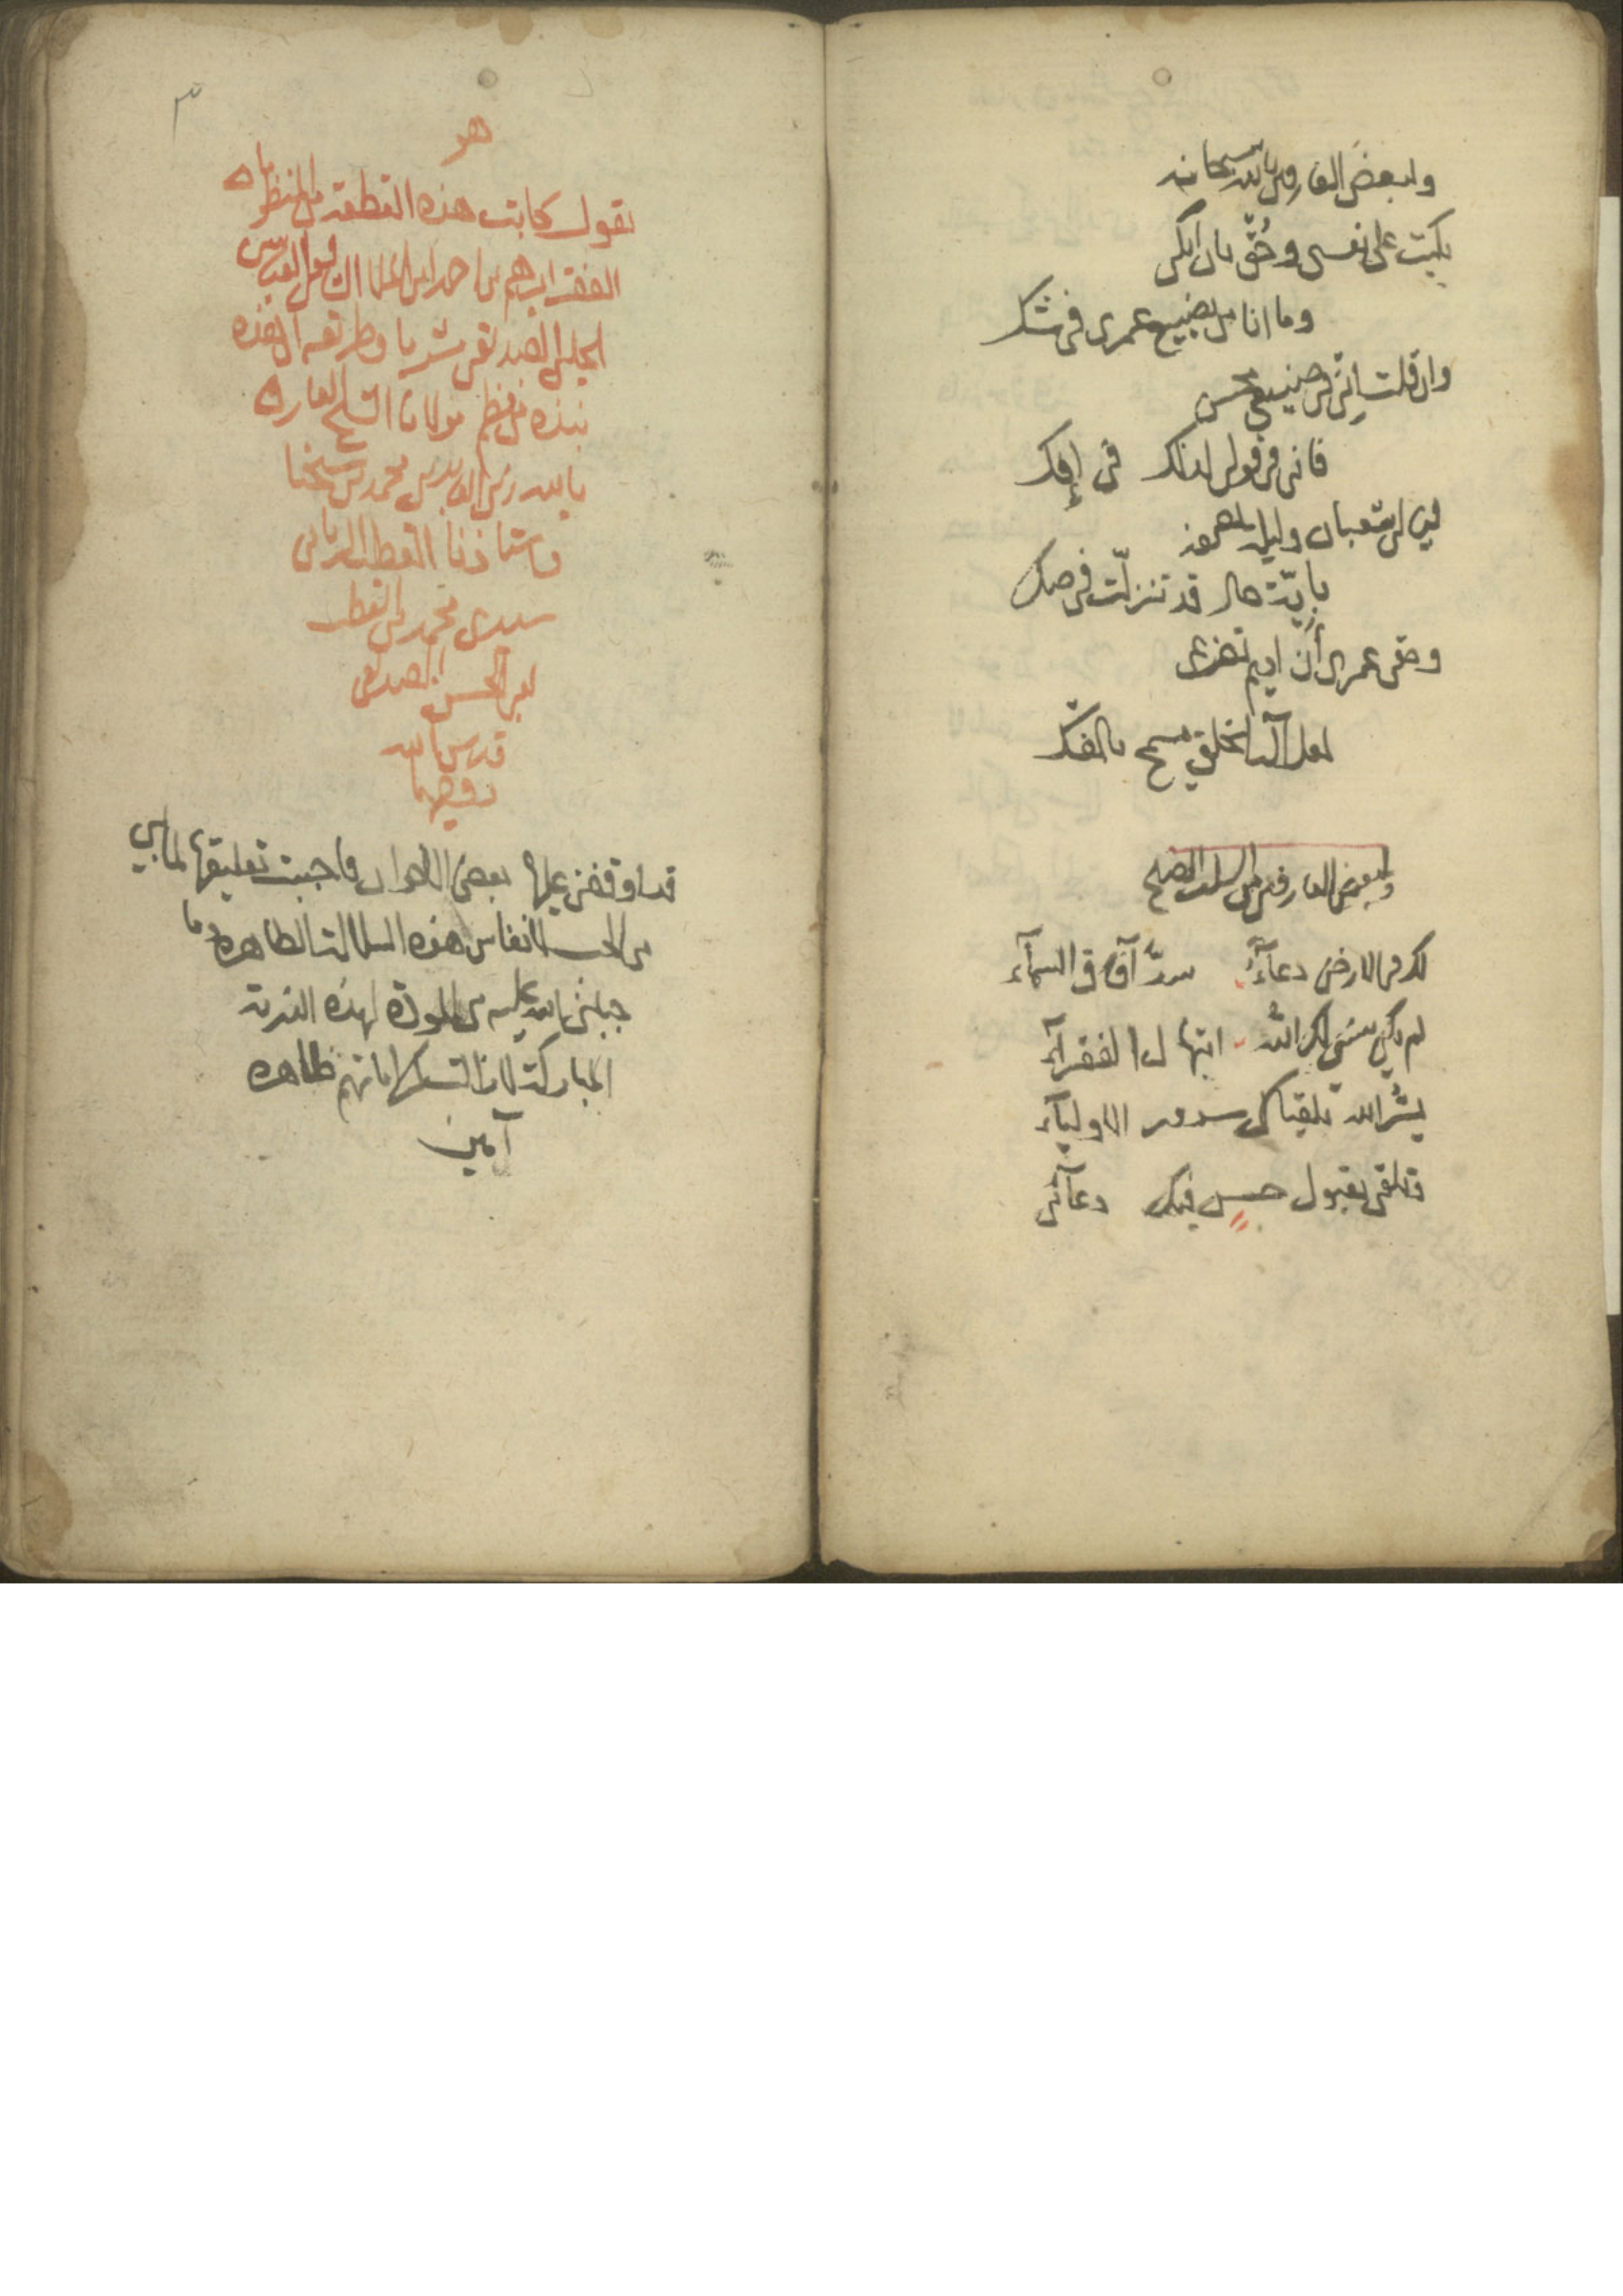 ولبعض العارفين بالله سبحانه
بكيت على نفسي وحُقّ بان ابكي
وما انا من تضييع عمري في شك
وان قلت اني في صنيعي محسن
فاني في قولي لذلك في إفك
ليالي شعبان وليل
بأيّة حال قد تنزلت في صك
وحقي عمري أن اديم تضرعي
لعل آله الخلق يسمح بالفك
ولبعض العارفين من السلف الصلح
لك في الارض دعآءٌ سدّ آفاق السمآء
لم يكن يبتغي لك الله ابتهال الفقرآء
يشر الله تلقياك سرور الاوليآء
وتلقى بقبول حسن فيك دعآئي
٣
هو
يقول كاتب هذه القطعة من المنظومات
الفقير ابرهيم بن احمد ابن الملا الشافعي العباسي
الحلبي الصديقي مشربا وطريقه ان هذه
نبذه من نظم مولانا الشيخ العارف
بالله زين العابدين محمد بن شيخنا
واستاذنا القطب الرباني
سيدي محمد بن القطب
ابي الحسن الصديقي
قدس الله
روحهما
قد اوقفني عليها بعض الاخوان فاحببت تعليقها لما بي
من الحب لانفاس هذه السلالة الطاهره وما
جبلني الله عليه من المودة لهذه الذرية
المباركة لا زالت كراماتهم ظاهره
آمين